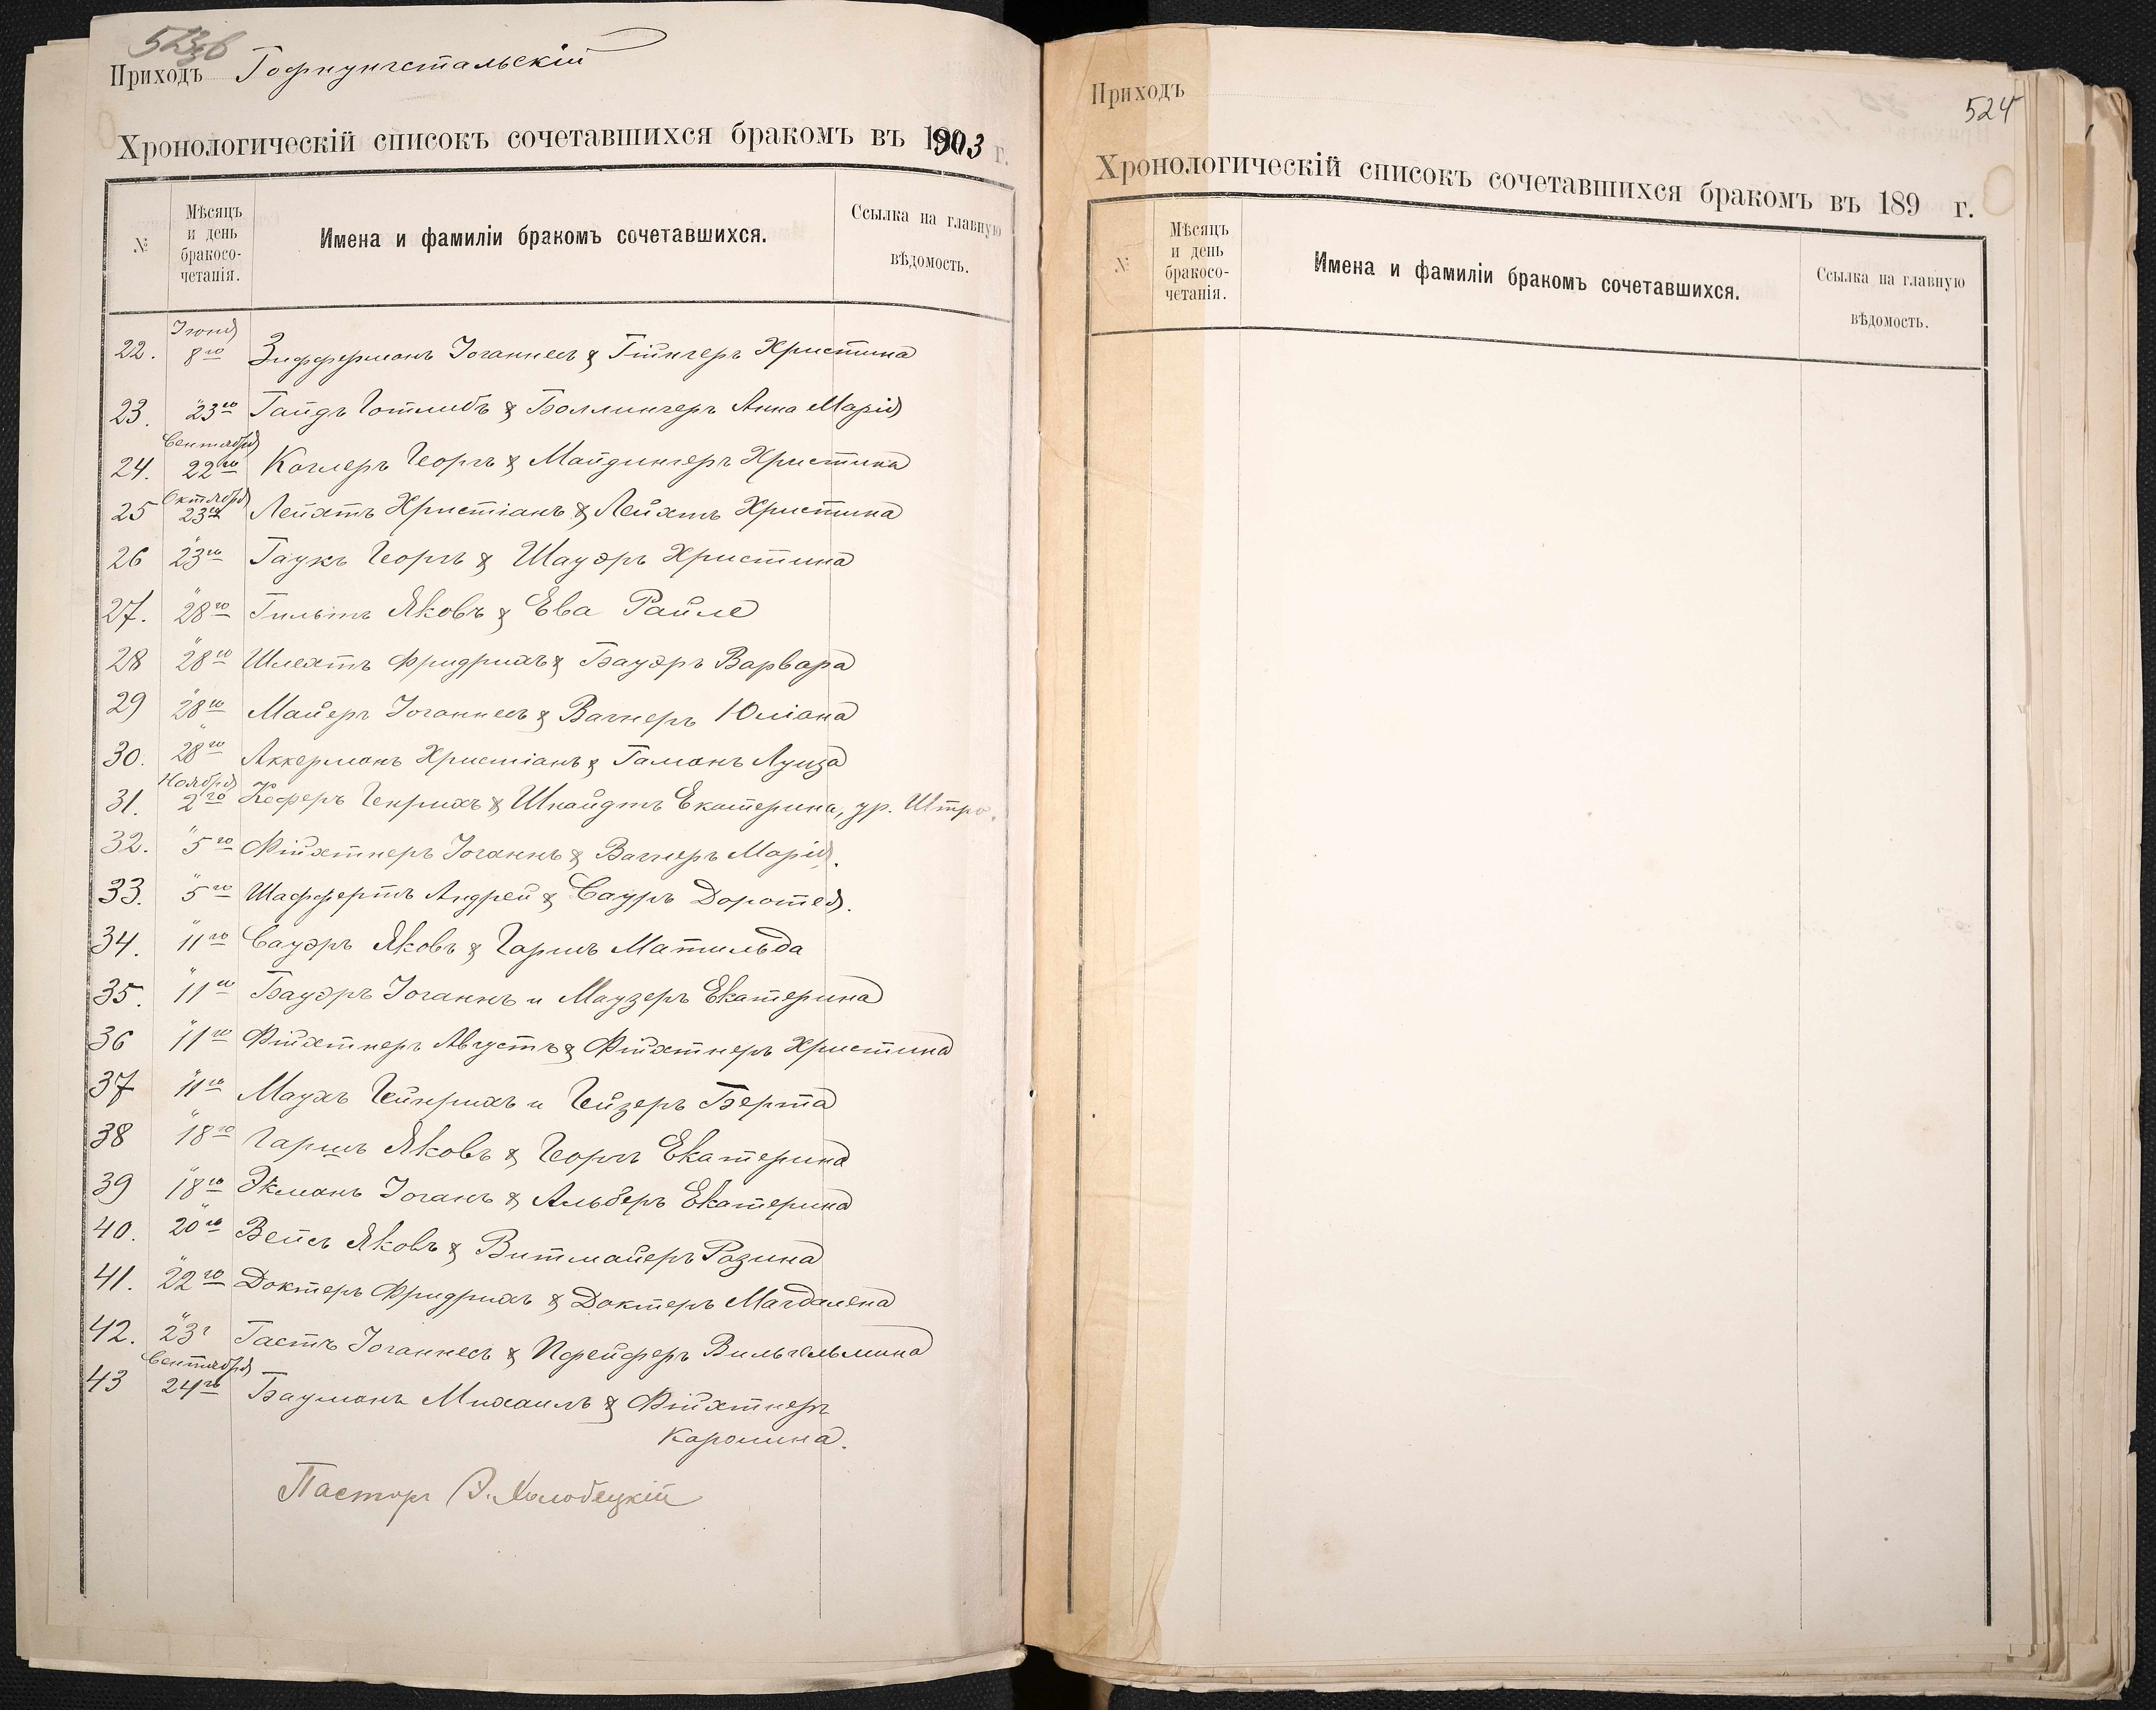 523об
Приходъ Гофнунгстальскій
Хронологическій списокъ сочетавшихся бракомъ въ 1903 г.
№ Мѣсяцъ и день бракосо-четанія. Имена и фамиліи бракомъ сочетавшихся. Ссылка на главную вѣдомость.
Іюня
22. 8го Зифферманъ Іоганнесъ & Гійнгеръ Христина
23. " 23го Гайдъ Готлибъ & Боллингеръ Анна Марія
Сентября
24. 22го Коглеръ Георгъ & Майдингеръ Христина
Октября
25 23го Лейхтъ Христіанъ & Лейхтъ Христина
26 " 23го Гаукъ Георгъ & Шауэръ Христина
27. " 28го Гильтъ Яковъ & Ева Райле
28 " 28го Шлехтъ Фридрихъ & Бауэръ Варвара
29 " 28го Майеръ Іоганнесъ & Вагнеръ Юліана
30. " 28го Аккерманъ Христіанъ & Гаманъ Луиза
Ноября
31. 2го Кеферъ Генрихъ & Шнайдтъ Екатерина, ур. Штро.
32. " 5го Фійхтнеръ Іоганнъ & Вагнеръ Марія.
33. " 5го Шаффертъ Андрей & Сауръ Доротея.
34. " 11го Сауэръ Яковъ & Гаришъ Матильда
35. " 11го Бауэръ Іоганнъ и Маузеръ Екатерина
36 " 11го Фійхтнеръ Августъ & Фійхтнеръ Христина
37 " 11го Маухъ Гейнрихъ и Гейзеръ Берта
38 " 18го Гаришъ Яковъ & Георгъ Екатерина
39 " 18го Экманъ Іоганъ & Альберъ Екатерина
40. " 20го Вейсъ Яковъ & Витмайеръ Розина
41. " 22го Докторъ Фридрихъ & Докторъ Магдалена
42. " 23г Гастъ Іоганнесъ & Пфейферъ Вильгельмина
Сентября
43 24го Бауманъ Михаилъ & Фійхтнеръ
Каролина.
Пасторъ
524
Приходъ
Хронологическій списокъ сочетавшихся бракомъ въ 189 г.
№ Мѣсяцъ и день бракосо-четанія. Имена и фамиліи бракомъ сочетавшихся. Ссылка на главную вѣдомость.